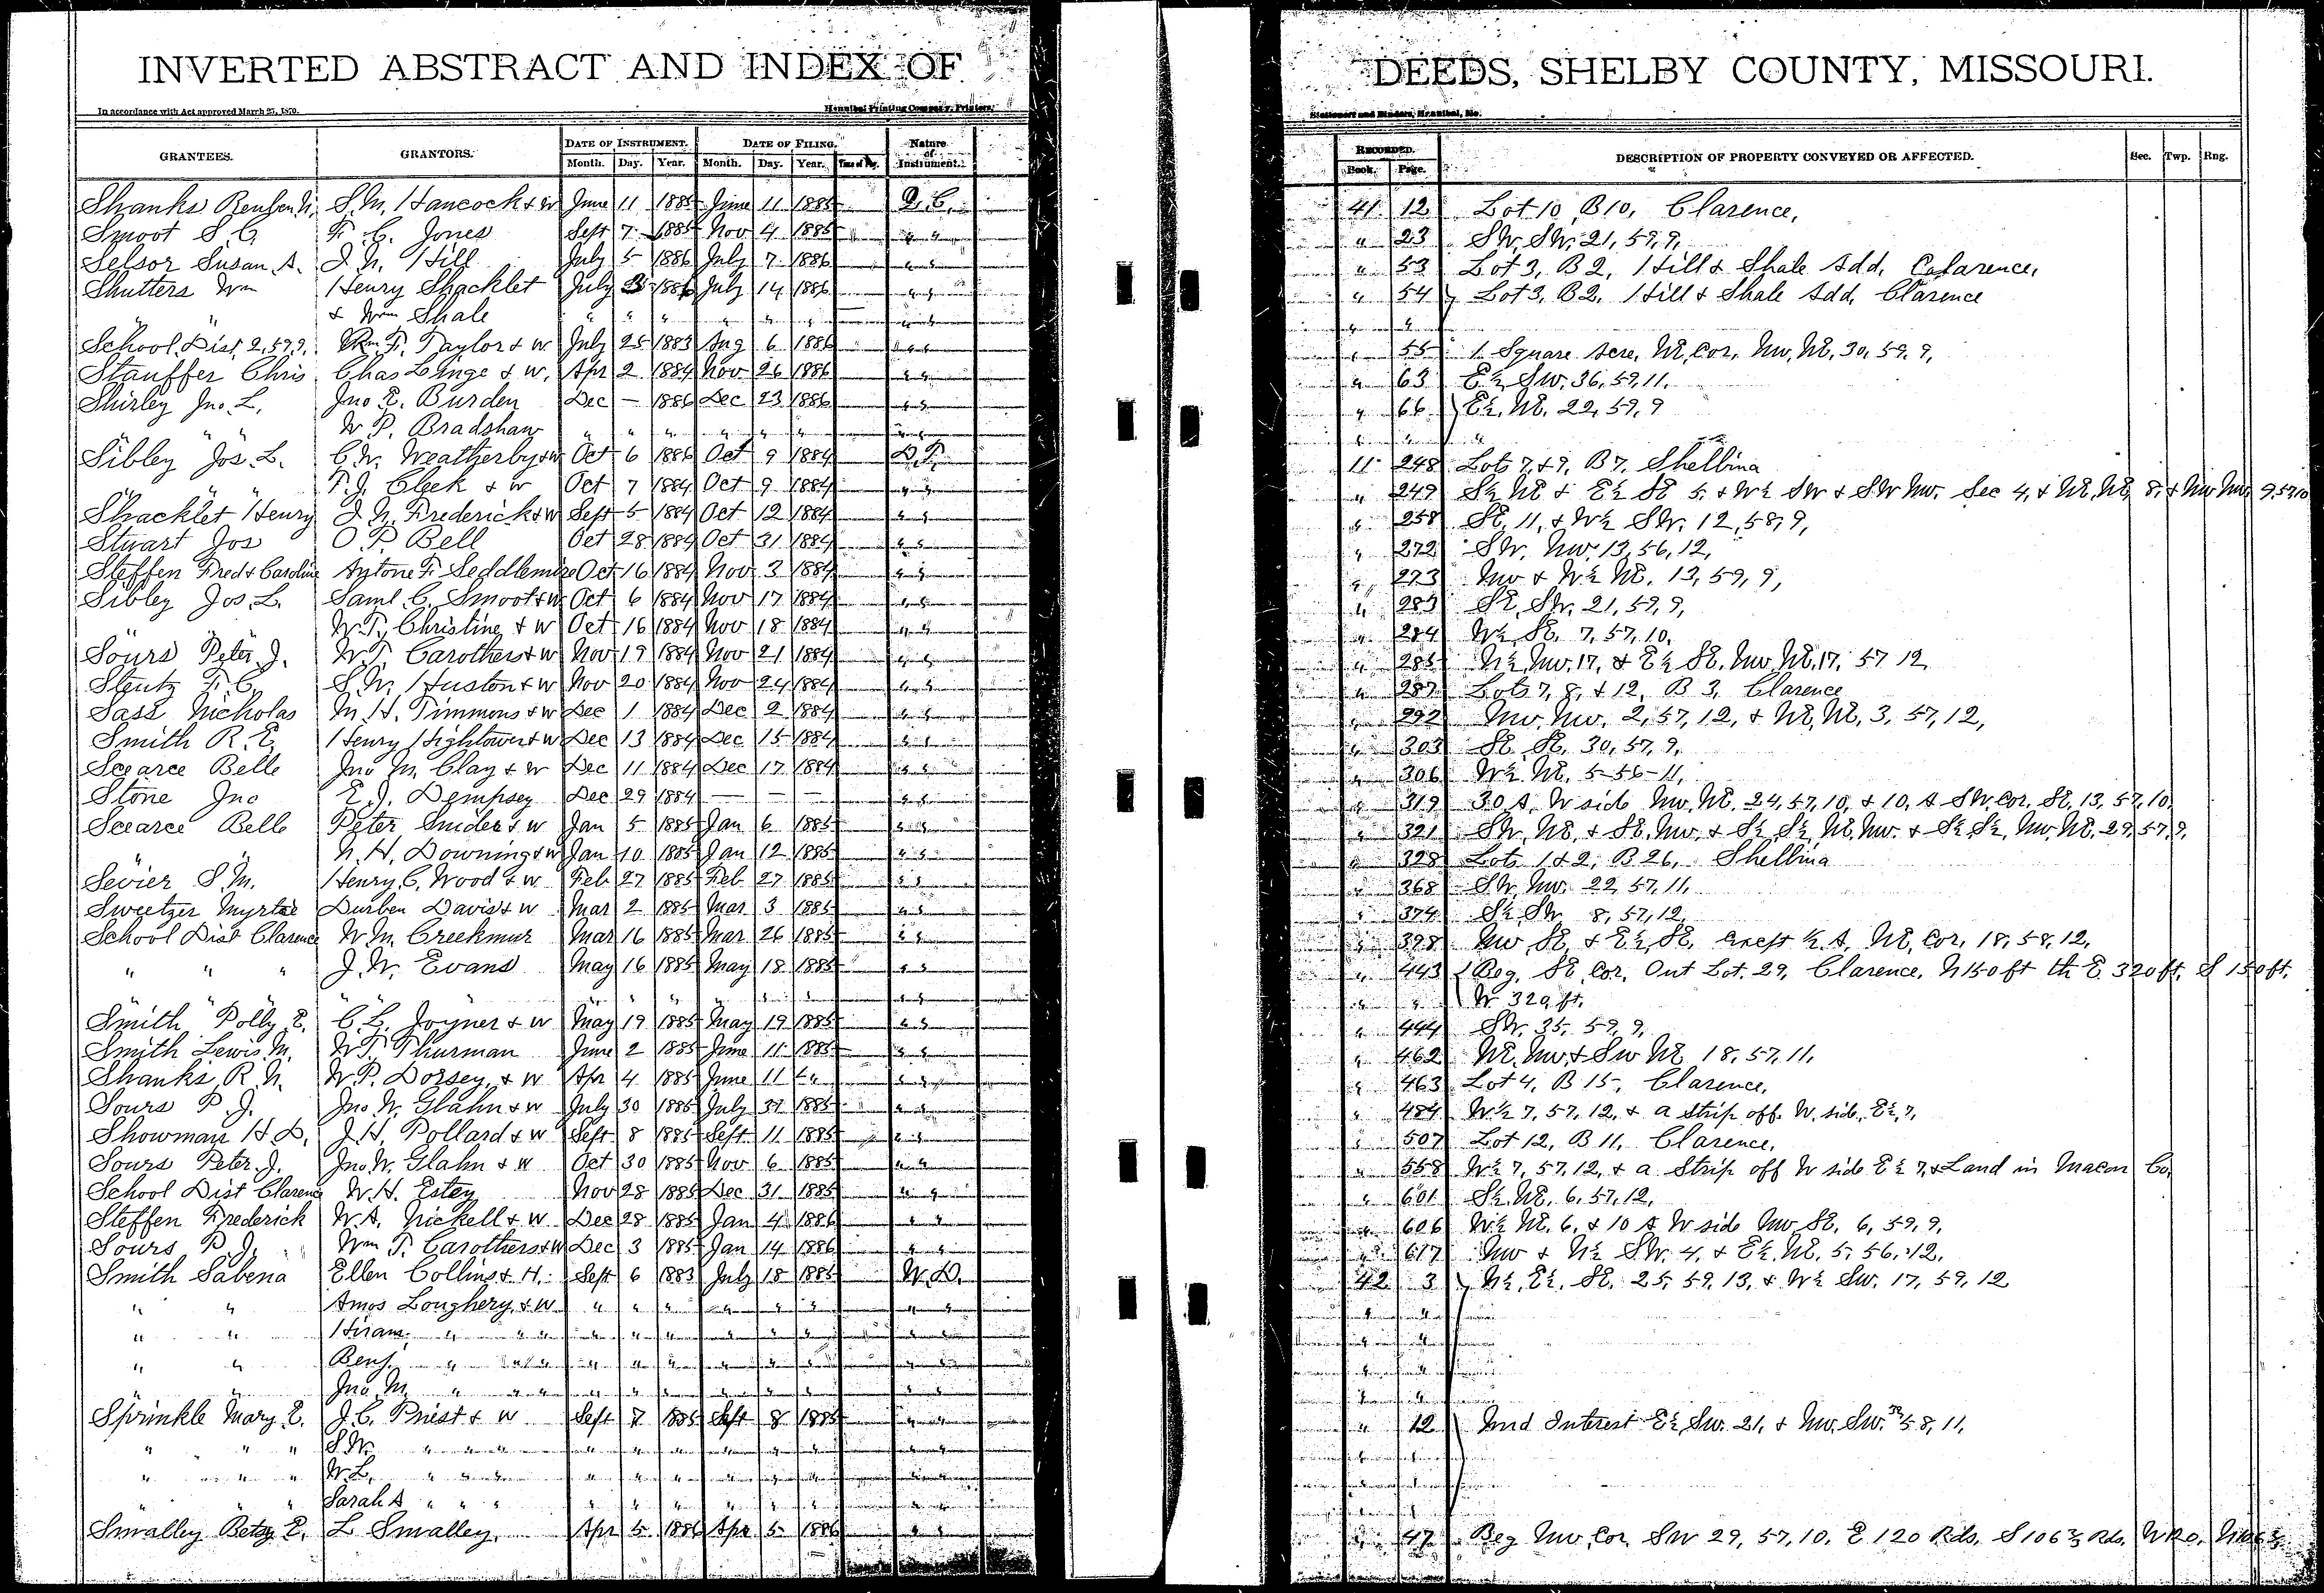 INVERTED ABSTRACT AND INDEX OF DEEDS, SHELBY COUNTY, MISSOURI.
In accordance with Act approved March 25, 1870. Hannibal Printing Company, Printers, Stationers and Binders, Hannibal, Mo.
GRANTEES. GRANTORS. DATE OF INSTRUMENT. DATE OF FILING. Nature of Instrument. RECORDED. DESCRIPTION OF PROPERTY CONVEYED OR AFFECTED. Sec. Twp. Rng.
Month. Day. Year. Month. Day. Year. Book. Page.
Shanks Reuben N. S.M. Hancock & W June 11 1885 June 11 1885 Q.C. 41 12 Lot 10, B 10, Clarence,
Smoot S.C. F. C. Jones Sept 7 1885 Nov 4 1885 " " " 23 SW, SW, 21, 59, 9,
Selsor Susan A. J. N. Hill July 5 1886 July 7 1886 " " " 53 Lot 3, B 2, Hill & Shale Add, Clarence,
Shutters Wm Henry Shacklet July 1886 July 14 1886 " " " 54 Lot 3, B 2, Hill & Shale Add, Clarence
" " & Wm Shale " " " " " " " " " "
School Dist 2, 57, 9. Wm F. Taylor & W July 25 1883 Aug 6 1886 " " " 55 1 Square Acre, NE, Cor, NW, NE, 30, 59, 9,
Stauffer Chris Chas Lange & W, Apr 2 1884 Nov 26 1886 " " " 63 E½ SW, 36, 59, 11,
Shirley Jno. L, Jno E. Burden Dec — 1886 Dec 23 1886 " " " 66 E½, NE, 22, 59, 9
" " " W P. Bradshaw " " " " " " " " " " "
Sibley Jos. L. C.W. Weatherby & W Oct 6 1886 Oct 9 1884 D.T. 11 248 Lots 7, & 9, B 7, Shelbina
" " " T.J. Cleek & W Oct 7 1884 Oct 9 1884 " " " 249 S½ NE & E½ SE 5, & W½ SW & SW NW, Sec 4, & NE, NE, 8, & NW NW, 9, 57, 10
Shacklet Henry J. N. Frederick & W Sept 5 1884 Oct 12 1884 " " " 258 SE, 11, & W½ SW, 12, 58, 9,
Stuart Jos O. P. Bell Oct 28 1884 Oct 31 1884 " " " 272 SW, NW, 13, 56, 12,
Steffen Fred & Caroline Antone F. Seddlemire Oct 16 1884 Nov 3 1884 " " " 273 NW & W½ NE, 13, 59, 9,
Sibley Jos. L. Saml. C. Smoot & W Oct 6 1884 Nov 17 1884 " " " 283 SE, SW, 21, 59, 9,
" " " W.T. Christine & W Oct 16 1884 Nov 18 1884 " " " 284 W½ SE, 7, 57, 10,
Sours Peter J. W.T. Carothers & W Nov 19 1884 Nov 21 1884 " " " 285 N½, NW, 17, & E½ SE, NW, NE, 17, 57 12
Stentz F. C. S.W. Huston & W Nov 20 1884 Nov 24 1884 " " " 287 Lots 7, 8, & 12, B 3, Clarence
Sass Nicholas M. H. Timmons & W Dec 1 1884 Dec 2 1884 " " " 292 NW, NW, 2, 57, 12, & NE, NE, 3, 57, 12,
Smith R. E. Henry Hightower & W Dec 13 1884 Dec 15 1884 " " " 303 SE SE, 30, 57, 9,
Scearce Belle Jno M. Clay & W Dec 11 1884 Dec 17 1884 " " " 306 W½ NE, 5-56-11,
Stone Jno E.J. Dempsey Dec 29 1884 — — — " " " 319 30 A, W side NW, NE, 24, 57, 10, & 10, A SW, Cor, SE, 13, 57, 10,
Scearce Belle Peter Snider & W Jan 5 1885 Jan 6 1885 " " " 321 SW, NE, & SE, NW, & S½, S½, NE, NW, & S½, S½, NW, NE, 29, 57, 9,
" " N. H. Downing & W Jan 10 1885 Jan 12 1885 " " " 328 Lots 1 & 2, B 26, Shelbina
Sevier S.M. Henry C. Wood & W Feb 27 1885 Feb 27 1885 " " " 368 SW, NW, 22, 57, 11,
Sweetzer Myrtie Durben Davis & W Mar 2 1885 Mar 3 1885 " " " 374 S½ SW 8, 57, 12,
School Dist Clarence W.M. Creekmur Mar 16 1885 Mar 26 1885 " " " 398 NW SE, & E½, SE, Except ½ A, NE, Cor, 18, 58, 12,
" " " J. W. Evans May 16 1885 May 18 1885 " " " 443 Beg, SE, Cor, Out Lot, 29, Clarence, N 150 ft th E 320 ft, S 150 ft,
" " " " " " " " " " " " " W 320 ft,
Smith Polly E. C. L. Joyner & W May 19 1885 May 19 1885 " " " 444 SW, 35, 59, 9,
Smith Lewis M. W.T. Thurman June 2 1885 June 11 1885 " " " 462 NE, NW, & SW NE 18, 57, 11,
Shanks R. N. W.P. Dorsey, & W Apr 4 1885 June 11 " " " " 463 Lot 4, B 15, Clarence,
Sours P. J. Jno W. Glahn & W July 30 1885 July 31 1885 " " " 484 W½ 7, 57, 12, & a strip off W side, E½, 7,
Showman H. D, J.H. Pollard & W Sept 8 1885 Sept 11 1885 " " " 507 Lot 12, B 11, Clarence,
Sours Peter J. Jno. W. Glahn & W Oct 30 1885 Nov 6 1885 " " " 558 W½ 7, 57, 12, & a Strip off W side E½ 7, & Land in Macon Co,
School Dist Clarence W.H. Estey Nov 28 1885 Dec 31 1885 " " " 601 S½, NE, 6, 57, 12,
Steffen Frederick W.A. Nickell & W Dec 28 1885 Jan 4 1886 " " " 606 W½ NE, 6, & 10 A W side NW SE, 6, 59, 9,
Sours P. J. Wm T. Carothers & W Dec 3 1885 Jan 14 1886 " " " 617 NW & N½ SW, 4, & E½, NE, 5, 56, 12,
Smith Sabena Ellen Collins & H. Sept 6 1883 July 18 1885 W.D. 42 3 N½, E½, SE, 25, 59, 13, & W½ SW, 17, 59, 12
" " Amos Loughery, & W " " " " " " " " " "
" " Hiram " " " " " " " " " " " " "
" " Benj. " " " " " " " " " " " " "
" " Jno. M, " " " " " " " " " " " " "
Sprinkle Mary E. J.C. Priest & W Sept 7 1885 Sept 8 1885 " " " 12 Und Interest E½, SW, 21, & NW, SW, 58, 11,
" " " S.W. " " " " " " " " " " " " "
" " " W.L. " " " " " " " " " " " " "
" " " Sarah A " " " " " " " " " " " " "
Smalley Betsy E. L Smalley, Apr 5 1886 Apr 5 1886 " " " 47 Beg NW, Cor, SW 29, 57, 10, E 120 Rds, S 106⅔ Rds,